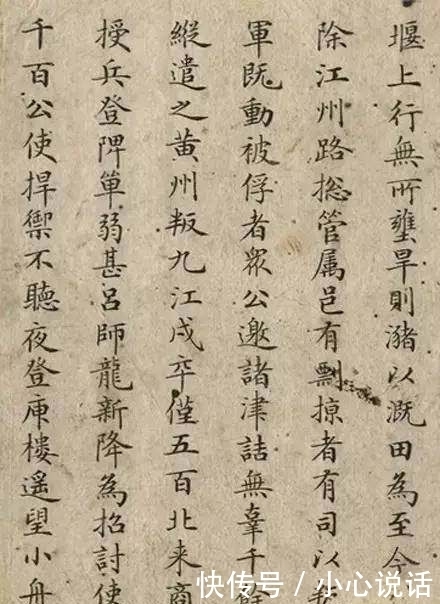 堰上行無所壅旱則瀦以溉田為至今
除江州路捴管属邑有剽掠者有司以
軍既動被俘者衆公邀諸津詰無辜千餘
縱遣之黄州叛九江戍卒僅五百北来商
授兵登陴單弱甚吕師龍新降為招討使
千百公使捍禦不聽夜登庾樓遥望小舟
快传号 / 小心说话